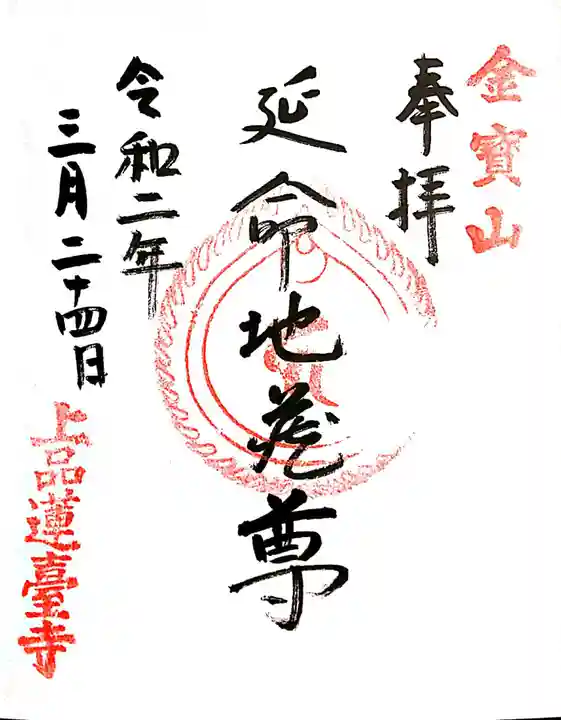 金寳山
奉拝
延命地蔵尊
令和二年
三月二十四日
上品蓮臺寺